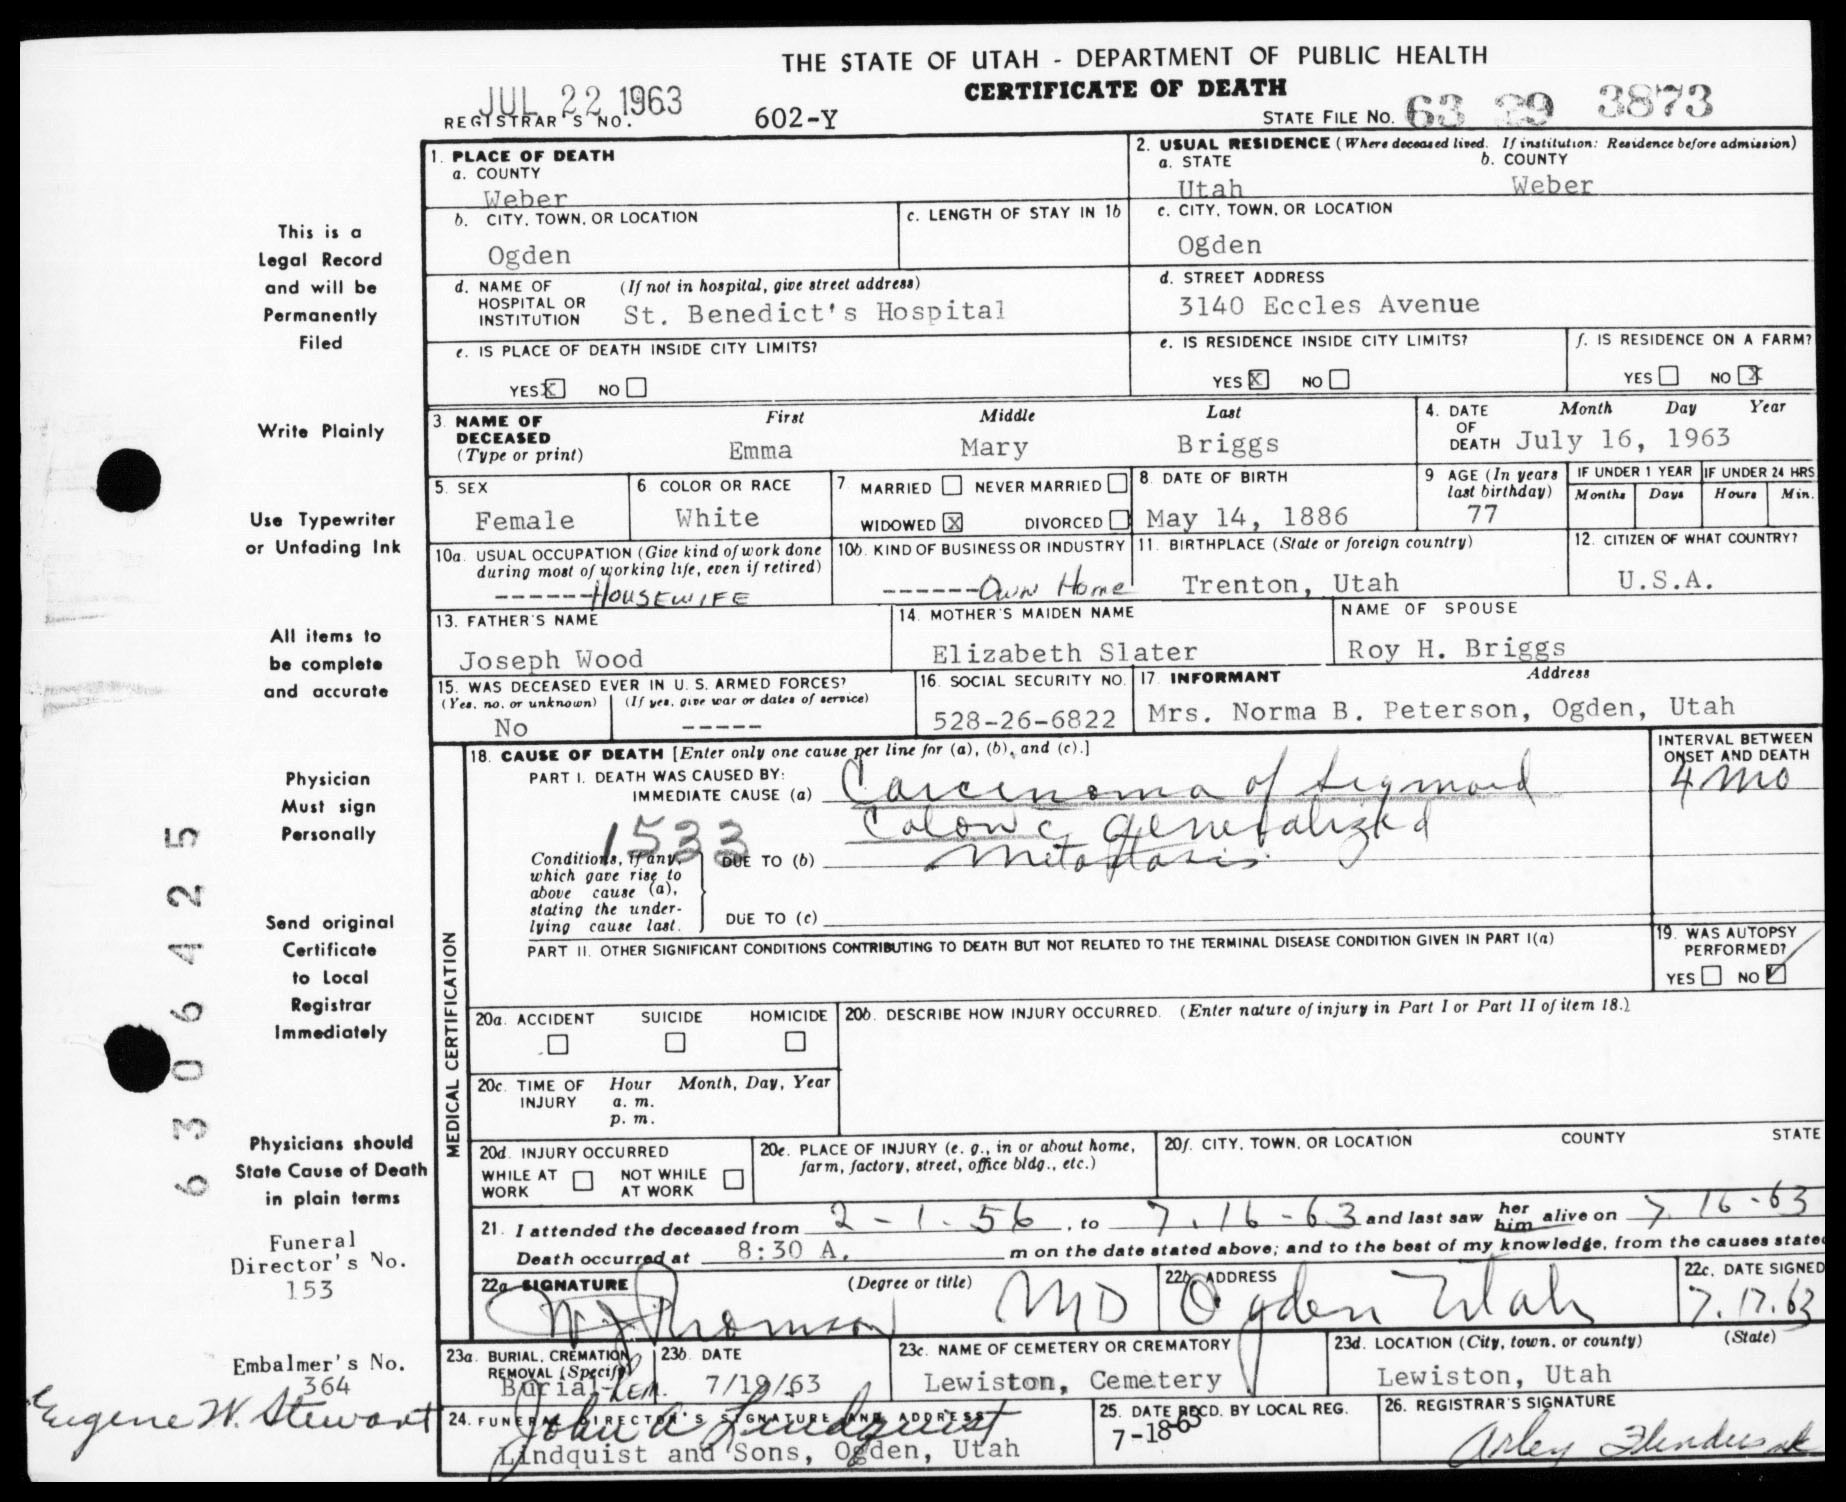 THE STATE OF UTAH - DEPARTMENT OF PUBLIC HEALTH
CERTIFICATE OF DEATH
JUL 22 1963
REGISTRAR'S NO. 602-Y STATE FILE NO. 63 29 3873
1. PLACE OF DEATH
a. COUNTY
Weber
2. USUAL RESIDENCE (Where deceased lived. If institution: Residence before admission)
a. STATE b. COUNTY
Utah Weber
b. CITY, TOWN, OR LOCATION
Ogden
c. LENGTH OF STAY IN 1b
c. CITY, TOWN, OR LOCATION
Ogden
d. NAME OF HOSPITAL OR INSTITUTION (If not in hospital, give street address)
St. Benedict's Hospital
d. STREET ADDRESS
3140 Eccles Avenue
e. IS PLACE OF DEATH INSIDE CITY LIMITS?
YES X NO
e. IS RESIDENCE INSIDE CITY LIMITS?
YES X NO
f. IS RESIDENCE ON A FARM?
YES NO X
3. NAME OF DECEASED (Type or print)
First Middle Last
Emma Mary Briggs
4. DATE OF DEATH Month Day Year
July 16, 1963
5. SEX
Female
6. COLOR OR RACE
White
7. MARRIED NEVER MARRIED
WIDOWED X DIVORCED
8. DATE OF BIRTH
May 14, 1886
9 AGE (In years last birthday)
77
IF UNDER 1 YEAR IF UNDER 24 HRS
Months Days Hours Min.
10a. USUAL OCCUPATION (Give kind of work done during most of working life, even if retired)
------HOUSEWIFE
10b. KIND OF BUSINESS OR INDUSTRY
------Own Home
11. BIRTHPLACE (State or foreign country)
Trenton, Utah
12. CITIZEN OF WHAT COUNTRY?
U.S.A.
13. FATHER'S NAME
Joseph Wood
14. MOTHER'S MAIDEN NAME
Elizabeth Slater
NAME OF SPOUSE
Roy H. Briggs
15. WAS DECEASED EVER IN U. S. ARMED FORCES?
(Yes, no, or unknown) (If yes, give war or dates of service)
No -----
16. SOCIAL SECURITY NO.
528-26-6822
17. INFORMANT Address
Mrs. Norma B. Peterson, Ogden, Utah
MEDICAL CERTIFICATION
18. CAUSE OF DEATH [Enter only one cause per line for (a), (b), and (c).]
PART I. DEATH WAS CAUSED BY:
IMMEDIATE CAUSE (a) Carcinoma of Sigmoid
Colon c generalized
1533
Conditions, if any, which gave rise to above cause (a), stating the underlying cause last.
DUE TO (b) Metastasis
DUE TO (c)
INTERVAL BETWEEN ONSET AND DEATH
4 mo
PART II. OTHER SIGNIFICANT CONDITIONS CONTRIBUTING TO DEATH BUT NOT RELATED TO THE TERMINAL DISEASE CONDITION GIVEN IN PART I(a)
19. WAS AUTOPSY PERFORMED?
YES NO
20a. ACCIDENT SUICIDE HOMICIDE
20b. DESCRIBE HOW INJURY OCCURRED. (Enter nature of injury in Part I or Part II of item 18.)
20c. TIME OF INJURY Hour Month, Day, Year
a. m.
p. m.
20d. INJURY OCCURRED
WHILE AT WORK NOT WHILE AT WORK
20e. PLACE OF INJURY (e. g., in or about home, farm, factory, street, office bldg., etc.)
20f. CITY, TOWN, OR LOCATION COUNTY STATE
21. I attended the deceased from 2-1-56, to 7-16-63 and last saw her him alive on 7-16-63
Death occurred at 8:30 A. m on the date stated above; and to the best of my knowledge, from the causes state
22a. SIGNATURE (Degree or title)
W J Thomson MD
22b. ADDRESS
Ogden Utah
22c. DATE SIGNED
7.17.63
23a. BURIAL, CREMATION, REMOVAL (Specify)
Burial-Rem.
23b. DATE
7/19/63
23c. NAME OF CEMETERY OR CREMATORY
Lewiston, Cemetery
23d. LOCATION (City, town, or county) (State)
Lewiston, Utah
24. FUNERAL DIRECTOR'S SIGNATURE AND ADDRESS
John A Lindquist
Lindquist and Sons, Ogden, Utah
25. DATE RECD. BY LOCAL REG.
7-18-63
26. REGISTRAR'S SIGNATURE
This is a
Legal Record
and will be
Permanently
Filed
Write Plainly
Use Typewriter
or Unfading Ink
All items to
be complete
and accurate
Physician
Must sign
Personally
Send original
Certificate
to Local
Registrar
Immediately
Physicians should
State Cause of Death
in plain terms
Funeral
Director's No.
153
Embalmer's No.
364
Eugene W. Stewart
6306425